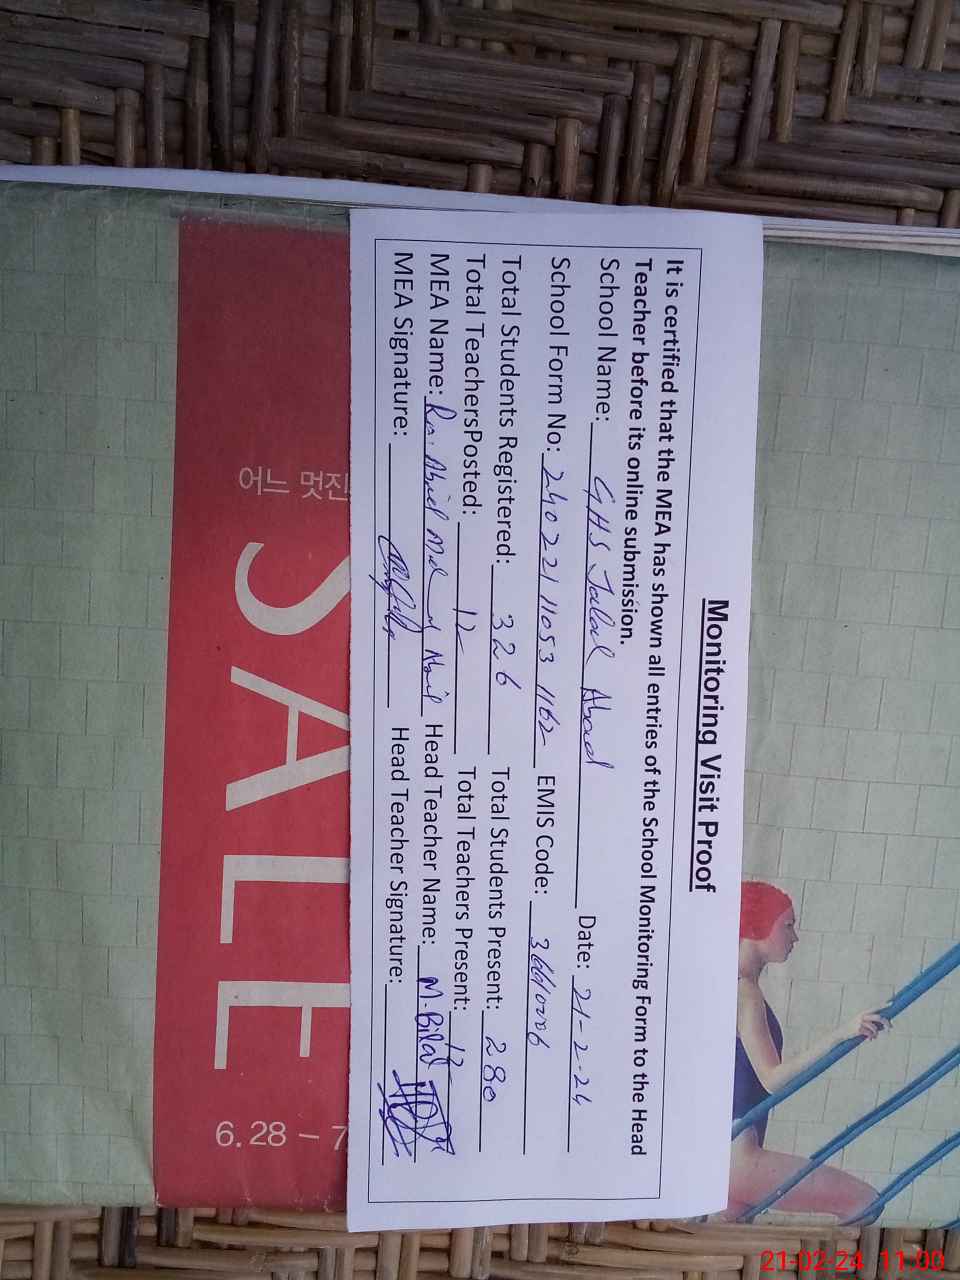 Monitoring Visit Proof
It is certified that the MEA has shown all entries of the School Monitoring Form to the Head
Teacher before its online submission.
School Name: GHS Jalal Abad Date: 21-2-24
School Form No: 240221110531162 EMIS Code:
Total Students Registered: 326 Total Students Present: 280
Total TeachersPosted: 12 Total Teachers Present: 12
MEA Name: Head Teacher Name: M. Bilal
MEA Signature: Head Teacher Signature:
어느 멋진
SALE
6.28 – 7
21-02-24 11:00